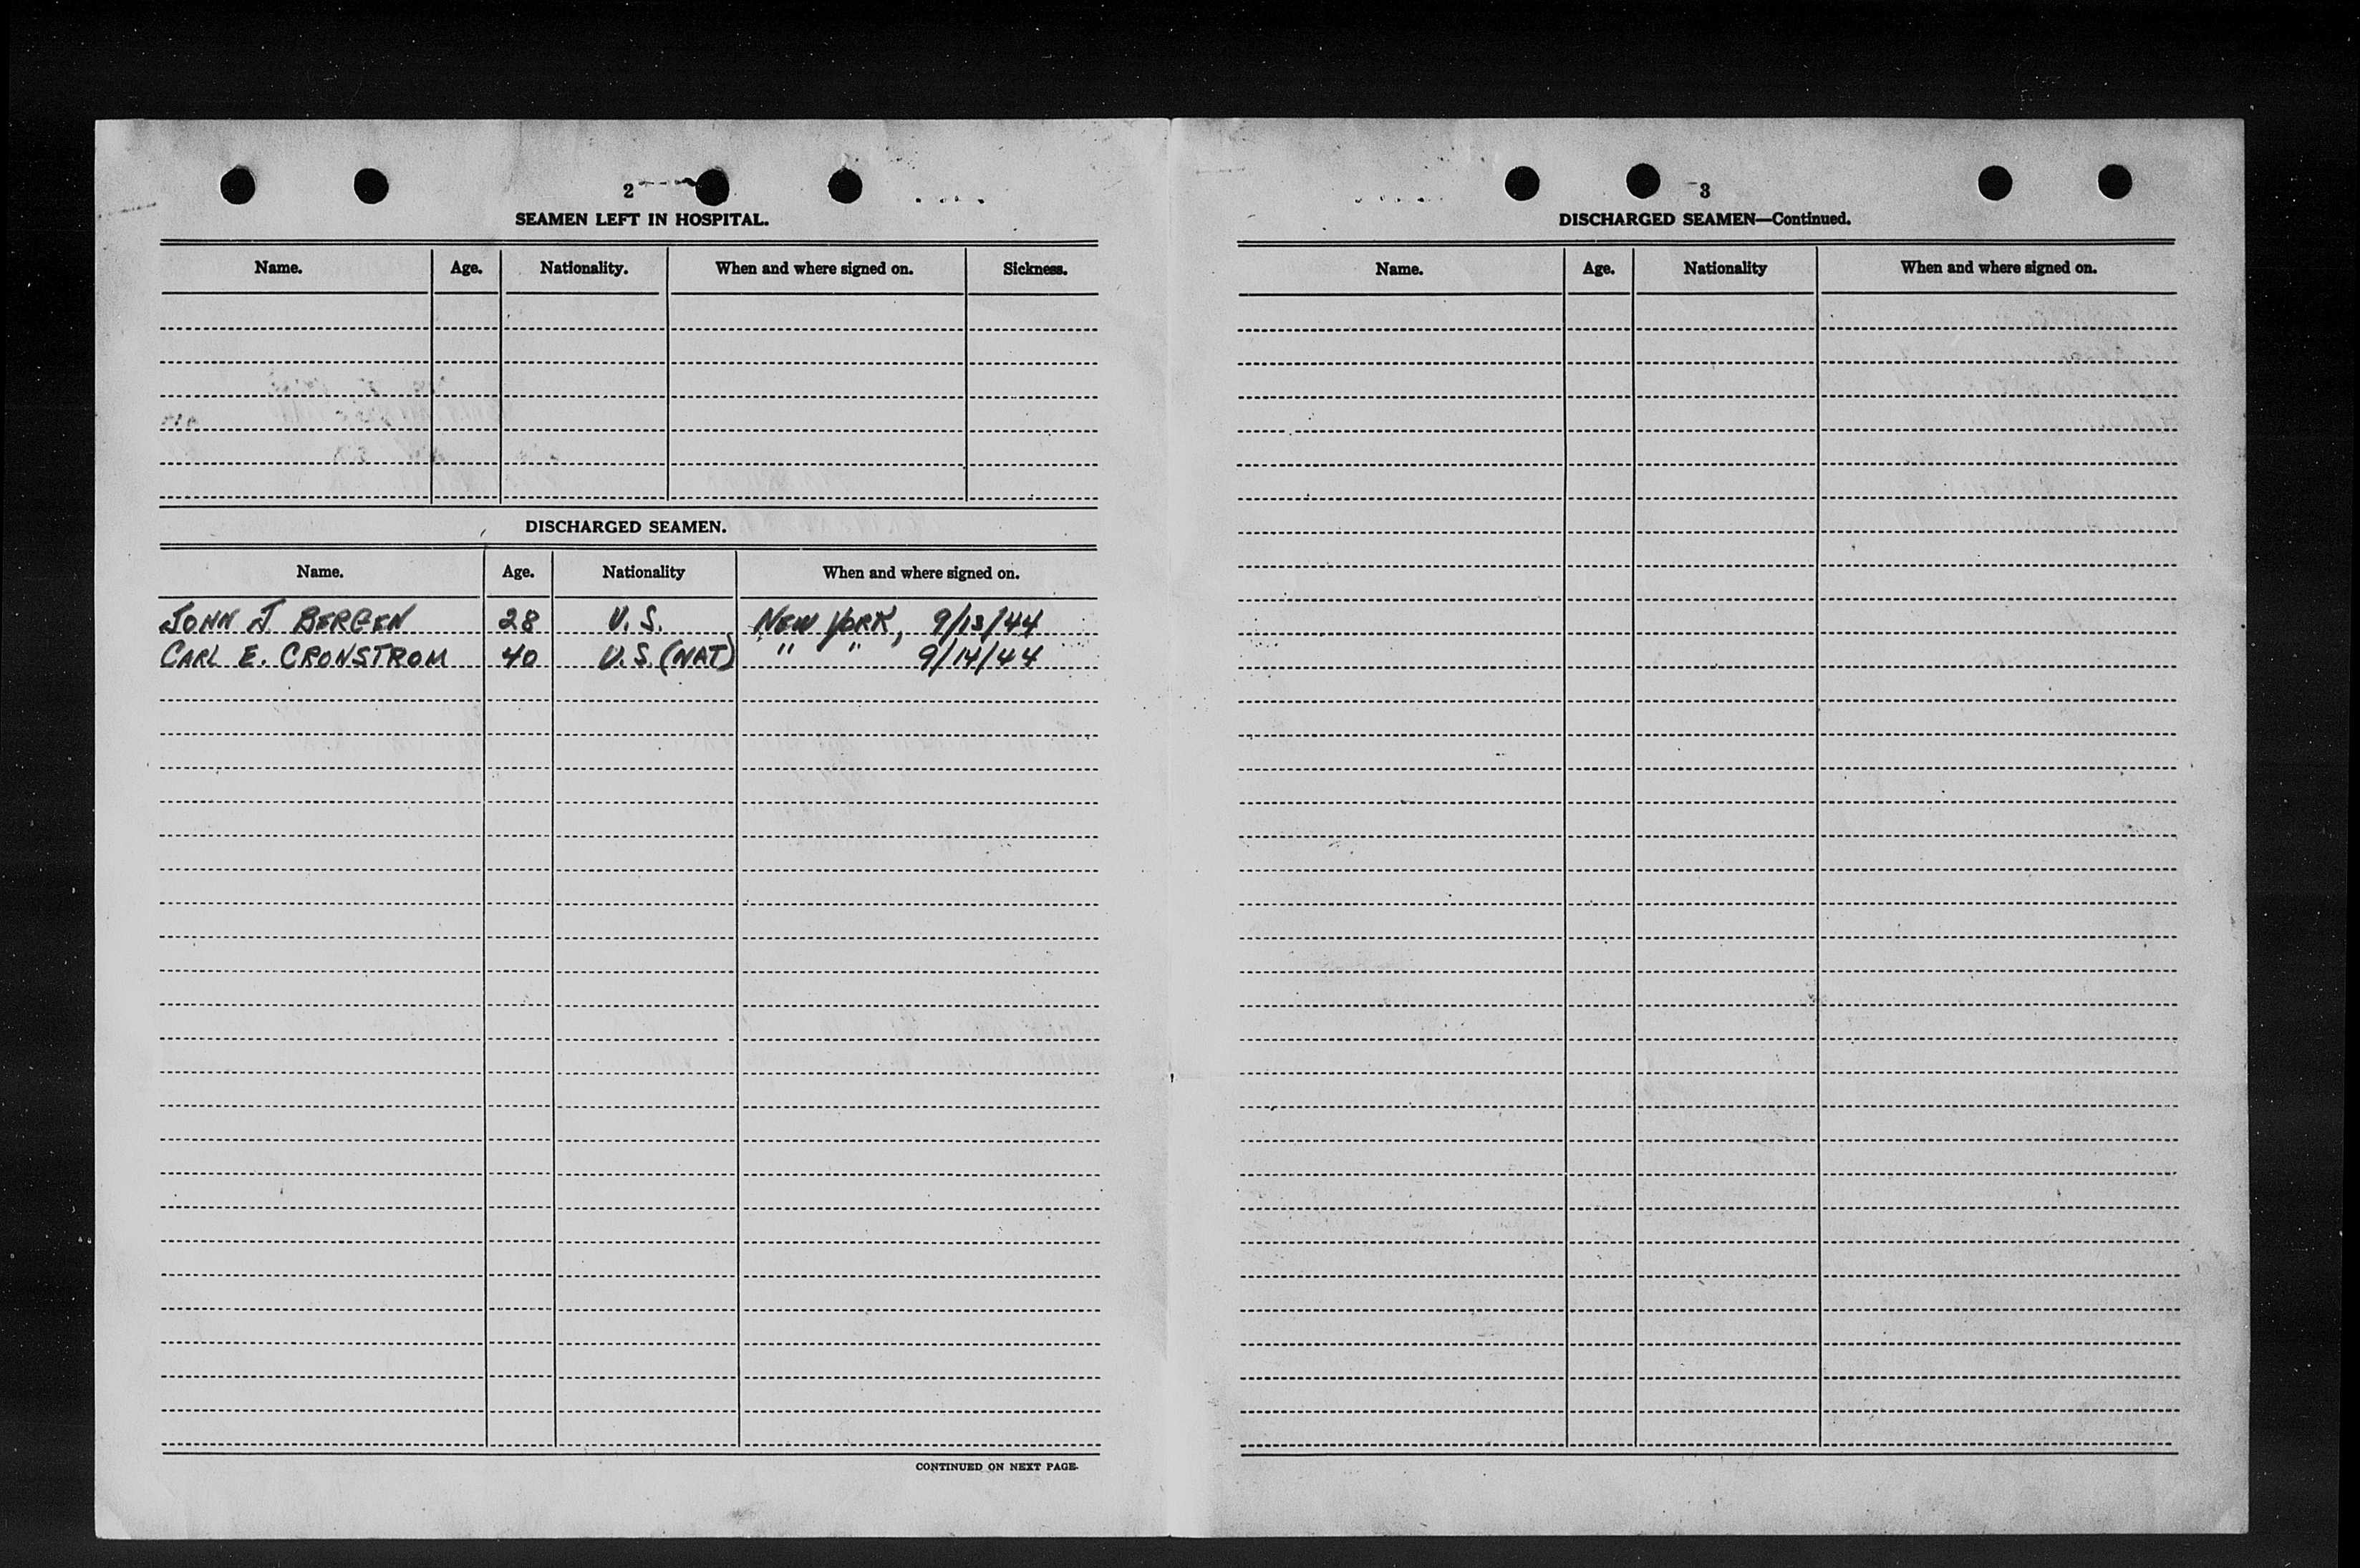 2
SEAMEN LEFT IN HOSPITAL.
Name. Age. Nationality. When and where signed on. Sickness.
DISCHARGED SEAMEN.
Name. Age. Nationality When and where signed on.
JOHN J BERGEN 28 U.S. NEW YORK, 9/13/44
CARL E. CRONSTROM 40 U.S. (NAT) " " 9/14/44
CONTINUED ON NEXT PAGE.
3
DISCHARGED SEAMEN—Continued.
Name. Age. Nationality When and where signed on.